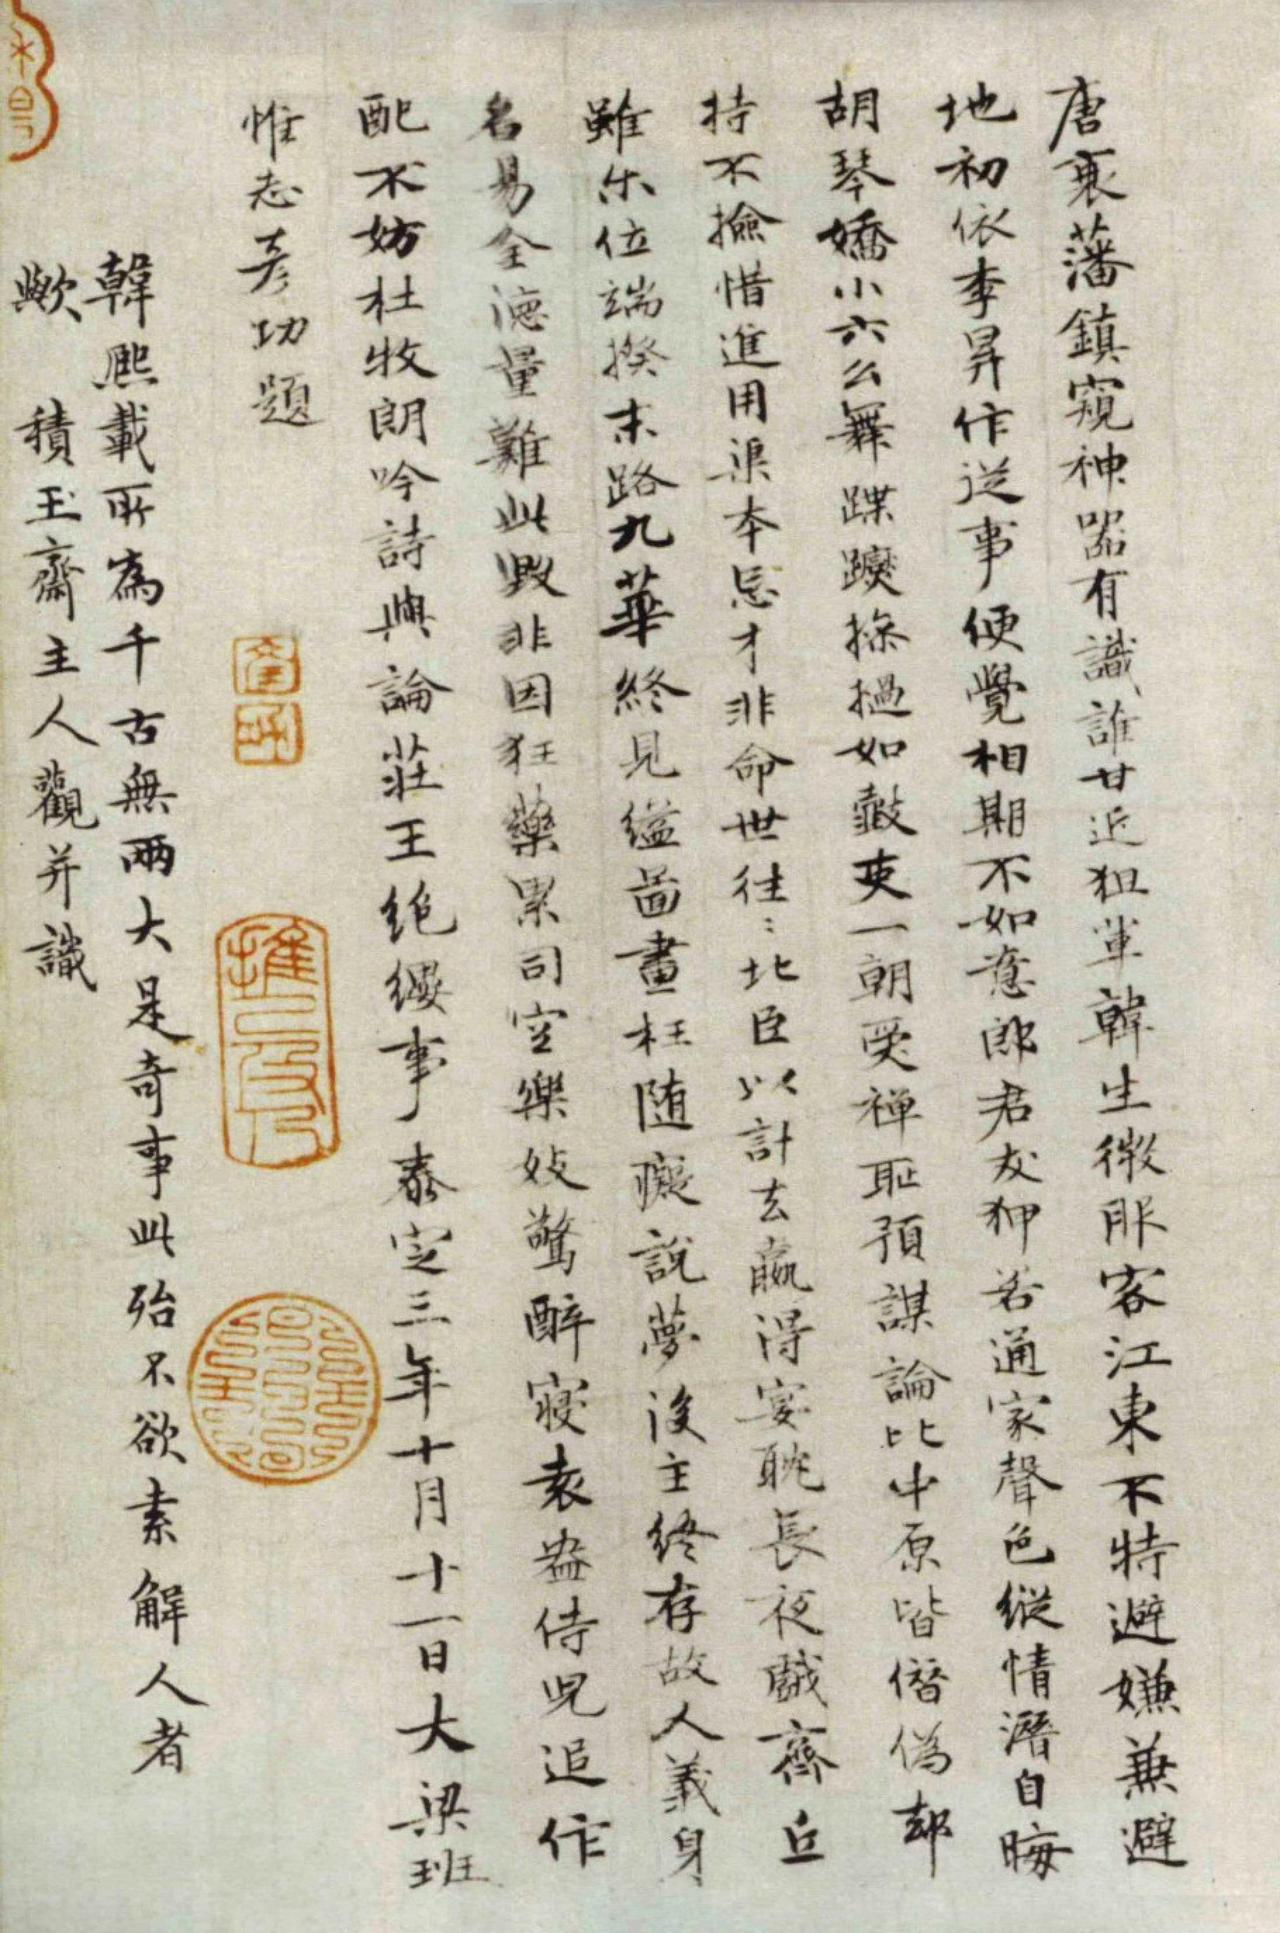 唐衰藩鎮窺神器有識誰甘近狙輩韓生微服客江東不特避嫌兼避
地初依李昪作逆事便覺相期不如意郎君友狎若通家聲色縱情潛自晦
胡琴嬌小六么舞蹀躞摻撾如鼓吏一朝受禪恥預謀論比中原皆僭偽却
持不撿惜進用渠本忌才非命世往〻北臣以計去贏得宴耽長夜戲齊丘
雖尓位端揆末路九華終見縊畵畫枉随癡說夢後主終存故人義身
名易全德量難此毀非因狂藥累司空樂妓驚醉寢袁盎侍兒追作
配不妨杜牧朗吟詩與論莊王絕纓事 泰定三年十月十一日大梁班
惟志彥功題
韓熙載所為千古無兩大是奇事此殆不欲素解人者
歟 積玉齋主人觀并識